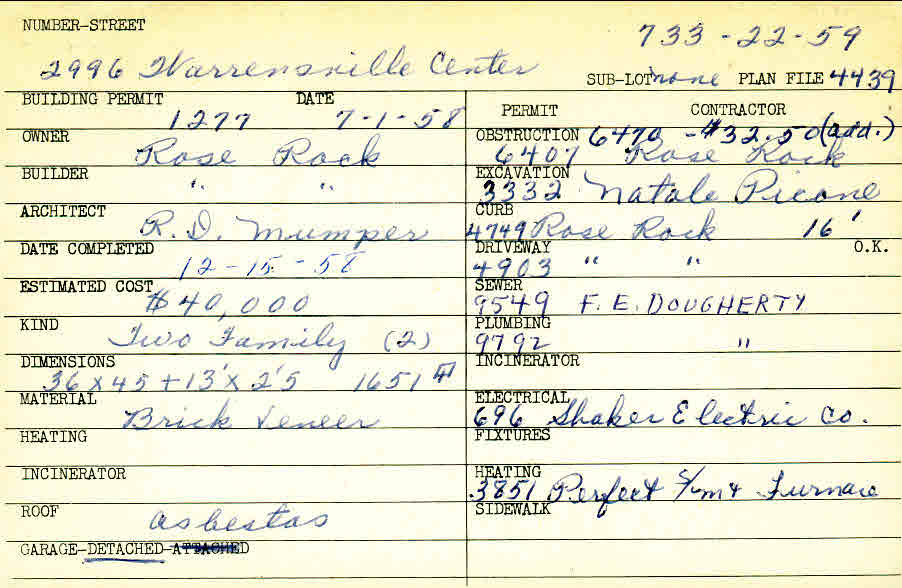 NUMBER-STREET
733-22-59
2996 Warrensville Center
SUB-LOT none PLAN FILE 4439
BUILDING PERMIT DATE
1277 7-1-58
OWNER
Rose Rock
BUILDER
" "
ARCHITECT
R. D. Mumper
DATE COMPLETED
12-15-58
ESTIMATED COST
$40,000
KIND
Two Family (2)
DIMENSIONS
36 x 45 + 13' x 2'5 1651
MATERIAL
Brick Veneer
HEATING
INCINERATOR
ROOF
asbestos
GARAGE-DETACHED-ATTACHED
PERMIT CONTRACTOR
OBSTRUCTION 6470 - $32.50 (add.)
6407 Rose Rock
EXCAVATION
3332 Natale Picone
CURB
4749 Rose Rock 16'
DRIVEWAY O.K.
4903 " "
SEWER
9549 F. E. DOUGHERTY
PLUMBING
9792 "
INCINERATOR
ELECTRICAL
696 Shaker Electric Co.
FIXTURES
HEATING
3851 Perfect Furnace
SIDEWALK